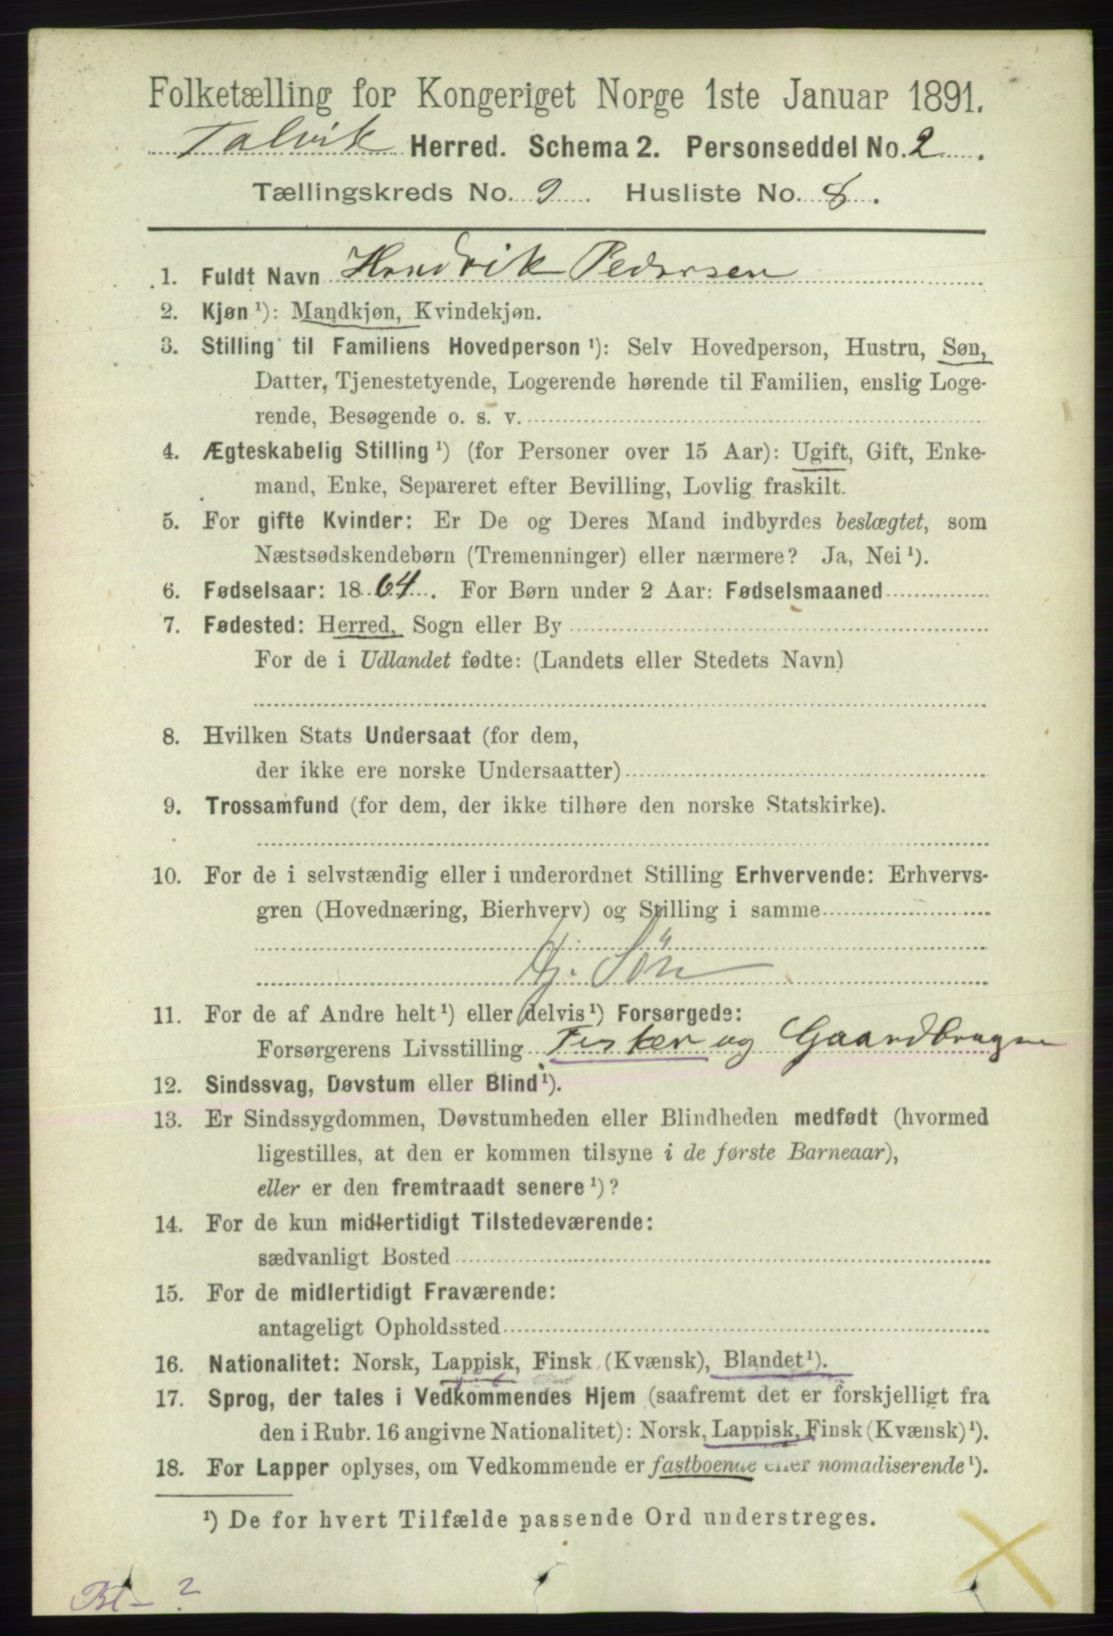 Folketælling for Kongeriget Norge 1ste Januar 1891.
Talvik Herred. Schema 2. Personseddel No. 2.
Tællingskreds No. 9. Husliste No. 8.
1. Fuldt Navn Hendrik Pedersen
2. Kjøn ¹): Mandkjøn, Kvindekjøn.
3. Stilling til Familiens Hovedperson ¹): Selv Hovedperson, Hustru, Søn,
Datter, Tjenestetyende, Logerende hørende til Familien, enslig Loge-
rende, Besøgende o. s. v.
4. Ægteskabelig Stilling ¹) (for Personer over 15 Aar): Ugift, Gift, Enke-
mand, Enke, Separeret efter Bevilling, Lovlig fraskilt.
5. For gifte Kvinder: Er De og Deres Mand indbyrdes beslægtet, som
Næstsødskendebørn (Tremenninger) eller nærmere? Ja, Nei ¹).
6. Fødselsaar: 1864. For Børn under 2 Aar: Fødselsmaaned
7. Fødested: Herred, Sogn eller By
For de i Udlandet fødte: (Landets eller Stedets Navn)
8. Hvilken Stats Undersaat (for dem,
der ikke ere norske Undersaatter)
9. Trossamfund (for dem, der ikke tilhøre den norske Statskirke).
10. For de i selvstændig eller i underordnet Stilling Erhvervende: Erhvervs-
gren (Hovednæring, Bierhverv) og Stilling i samme
Hj. Søn
11. For de af Andre helt ¹) eller delvis ¹) Forsørgede:
Forsørgerens Livsstilling Fisker og Gaardbruger
12. Sindssvag, Døvstum eller Blind ¹).
13. Er Sindssygdommen, Døvstumheden eller Blindheden medfødt (hvormed
ligestilles, at den er kommen tilsyne i de første Barneaar),
eller er den fremtraadt senere ¹)?
14. For de kun midlertidigt Tilstedeværende:
sædvanligt Bosted
15. For de midlertidigt Fraværende:
antageligt Opholdssted
16. Nationalitet: Norsk, Lappisk, Finsk (Kvænsk), Blandet ¹).
17. Sprog, der tales i Vedkommendes Hjem (saafremt det er forskjelligt fra
den i Rubr. 16 angivne Nationalitet): Norsk, Lappisk, Finsk (Kvænsk) ¹).
18. For Lapper oplyses, om Vedkommende er fastboende eller nomadiserende ¹).
¹) De for hvert Tilfælde passende Ord understreges.